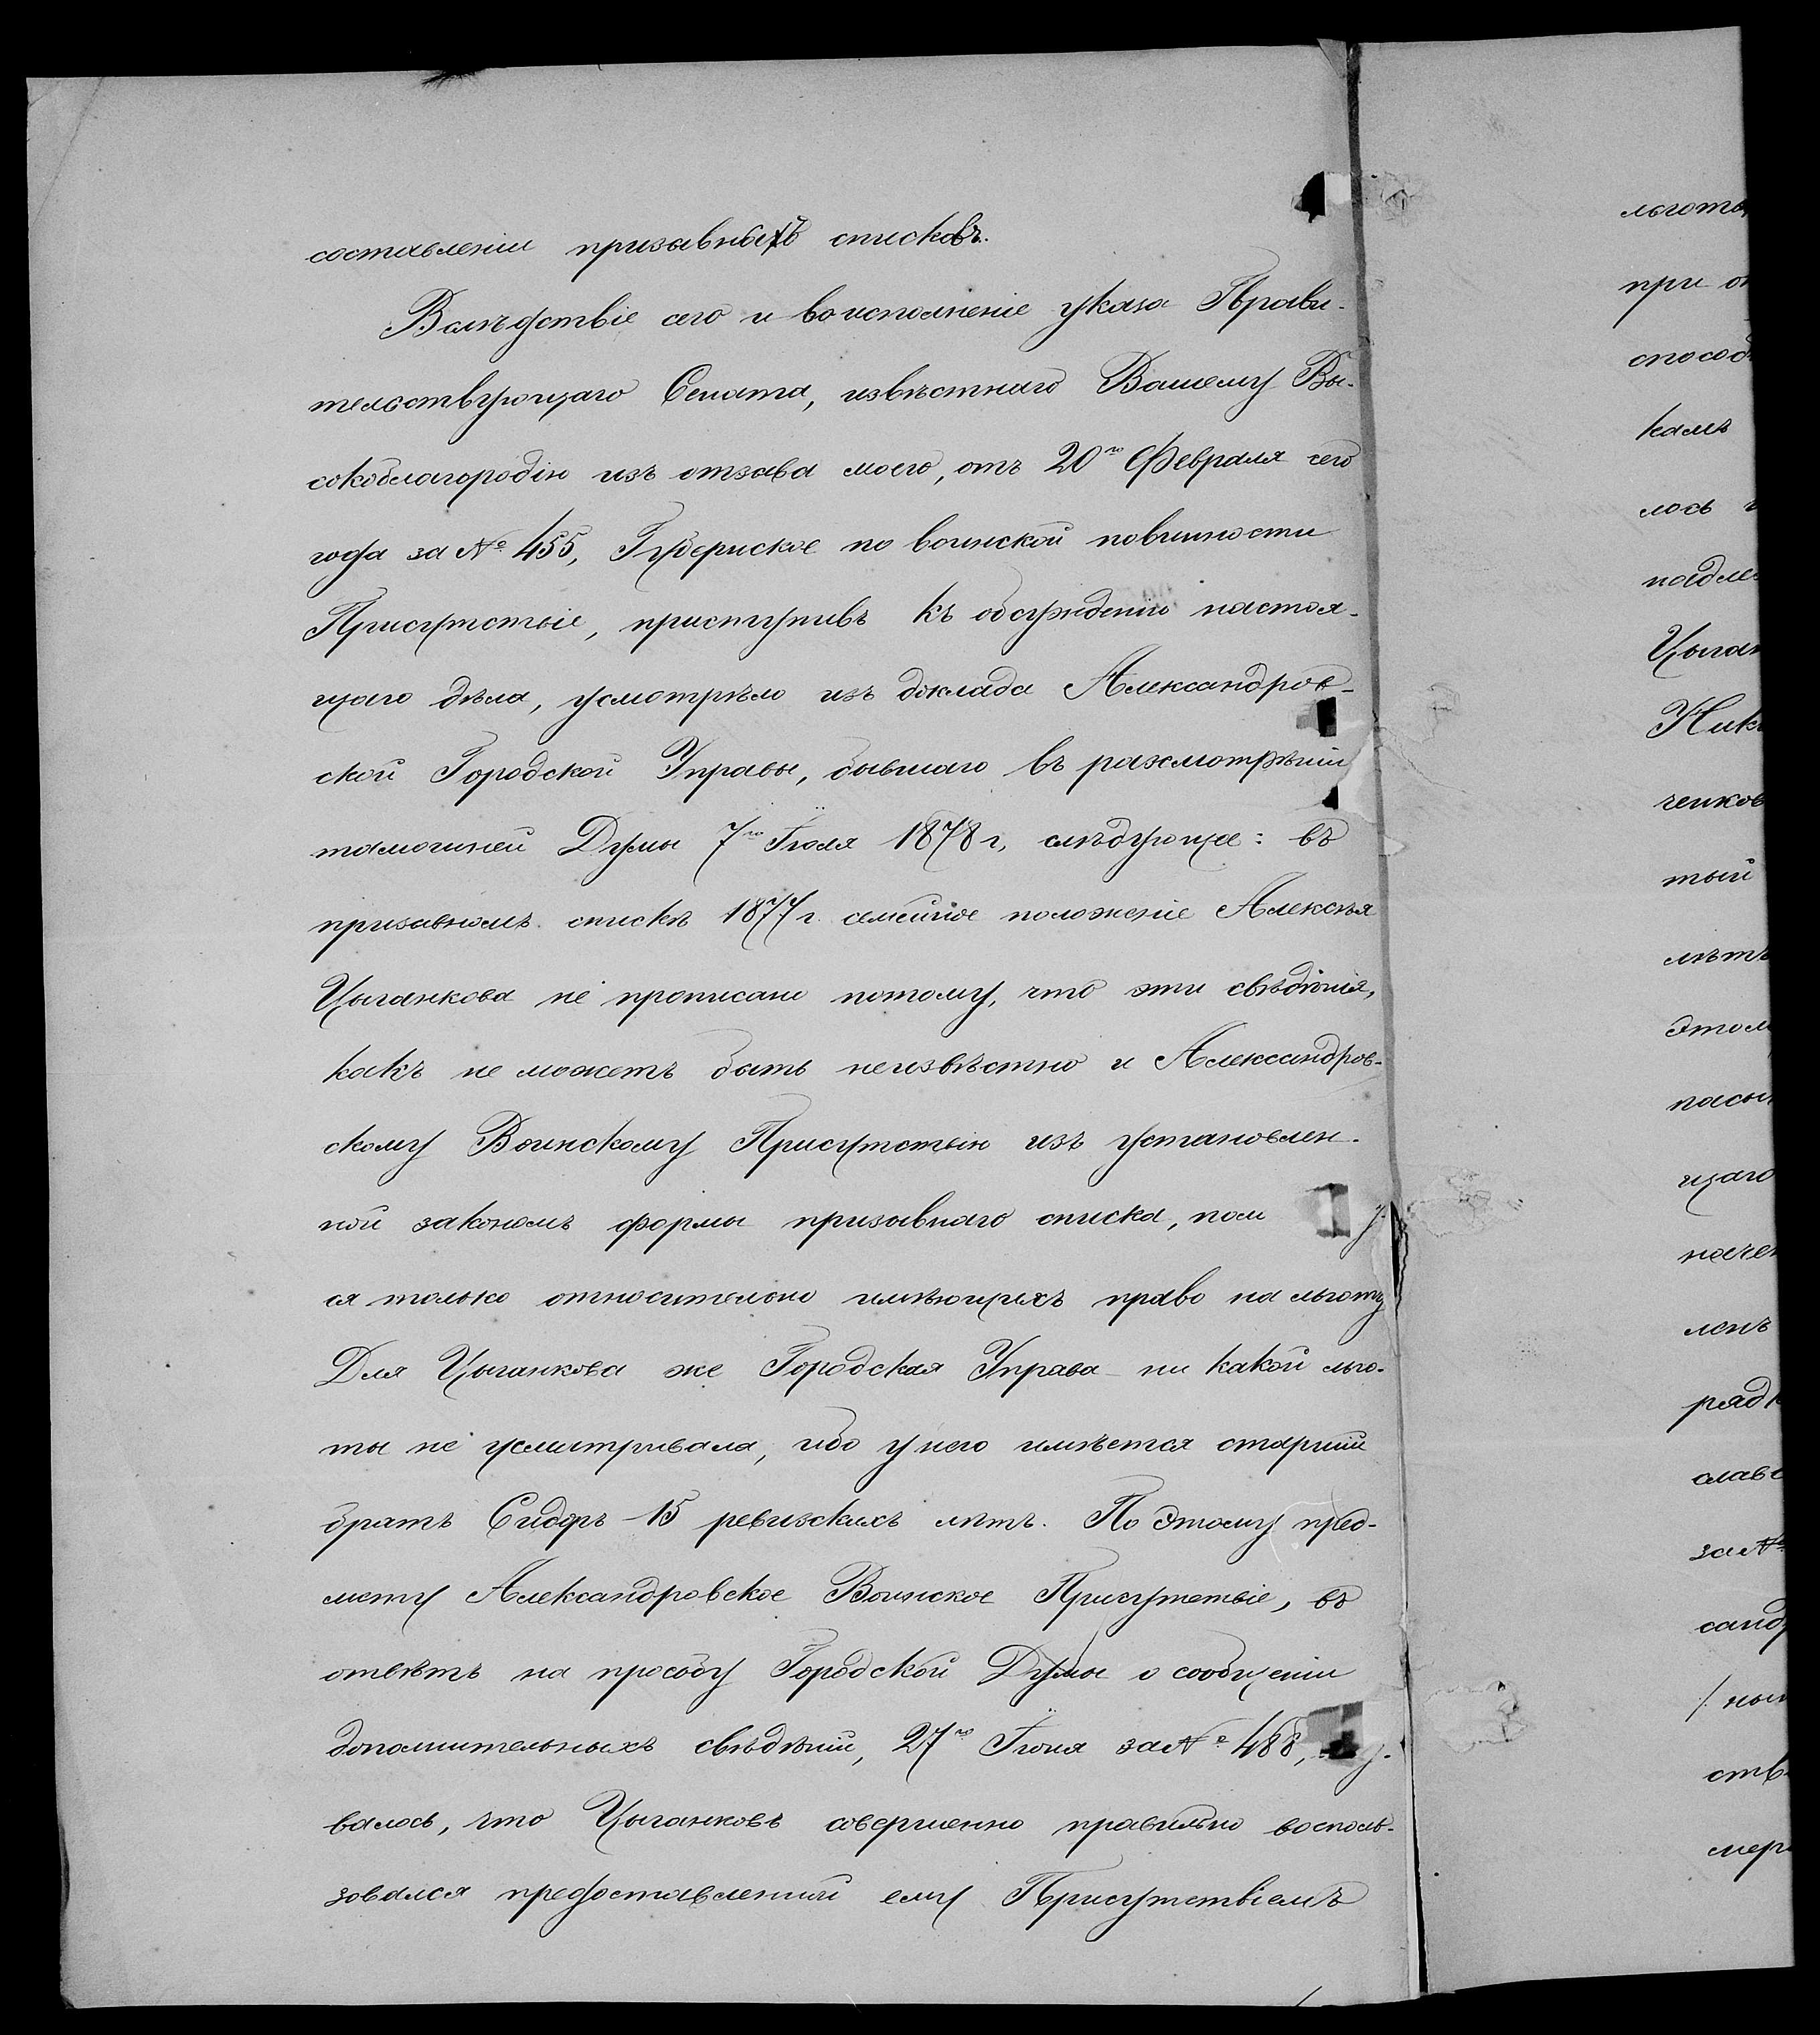 составленіи призывныхъ списковъ.
Вслѣдствіе сего и во исполненіе указа Прави-
тельствующаго Сената, извѣстнаго Вашему Вы-
сокоблагородію изъ отзыва моего, отъ 20го Февраля сего
года за № 455, Губернское по воинской повинности
Присутствіе, приступивъ къ обсужденію настоя-
щаго дѣла, усмотрѣло изъ доклада Александров-
ской Городской Управы, бывшаго въ разсмотрѣніи
тамошней Думы 7го Іюля 1878 г, слѣдующее: въ
призывномъ спискѣ 1877 г. семейное положеніе Алексѣя
Цыганкова не прописано потому, что эти свѣдѣнія,
какъ не можетъ быть неизвѣстно и Александров-
скому Воинскому Присутствію изъ установлен-
ной закономъ формы призывнаго списка, пом
ся только относительно имѣющихъ право на льготу
Для Цыганкова же Городская Управа ни какой льго-
ты не усматривала, ибо у него имѣется старшій
братъ Сидоръ 15 ревизскихъ лѣтъ. По этому пред-
мету Александровское Воинское Присутствіе, въ
отвѣтъ на просьбу Городской Думы о сообщеніи
дополнительныхъ свѣдѣній, 27го Іюня за № 488,
валось, что Цыганковъ совершенно правильно восполь-
зовался предоставленной ему Присутствіемъ
льготы
при
способ
камъ
лось
подле
Цыган
Ник
ченков
тый
лѣтъ
этом
насы
щаго
начен
ленъ
ряд
слав
за №
санд
ным
ств
мер